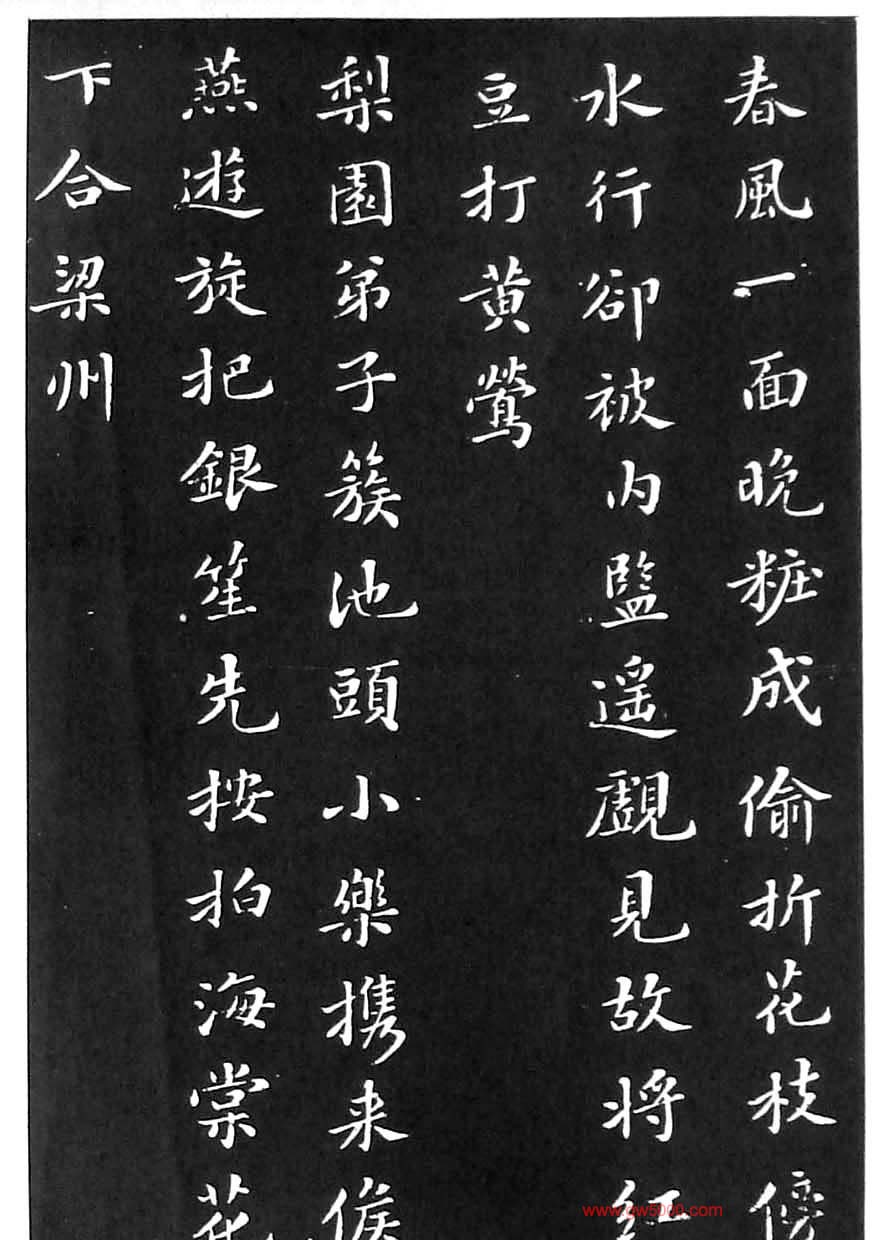 春風一面晩粧成偷折花枝傍
水行卻被内監遥覰見故將紅
豆打黄鶯
梨園弟子簇池頭小樂携来候
燕遊旋把銀笙先按拍海棠花
下合梁州
www.qw5000.com